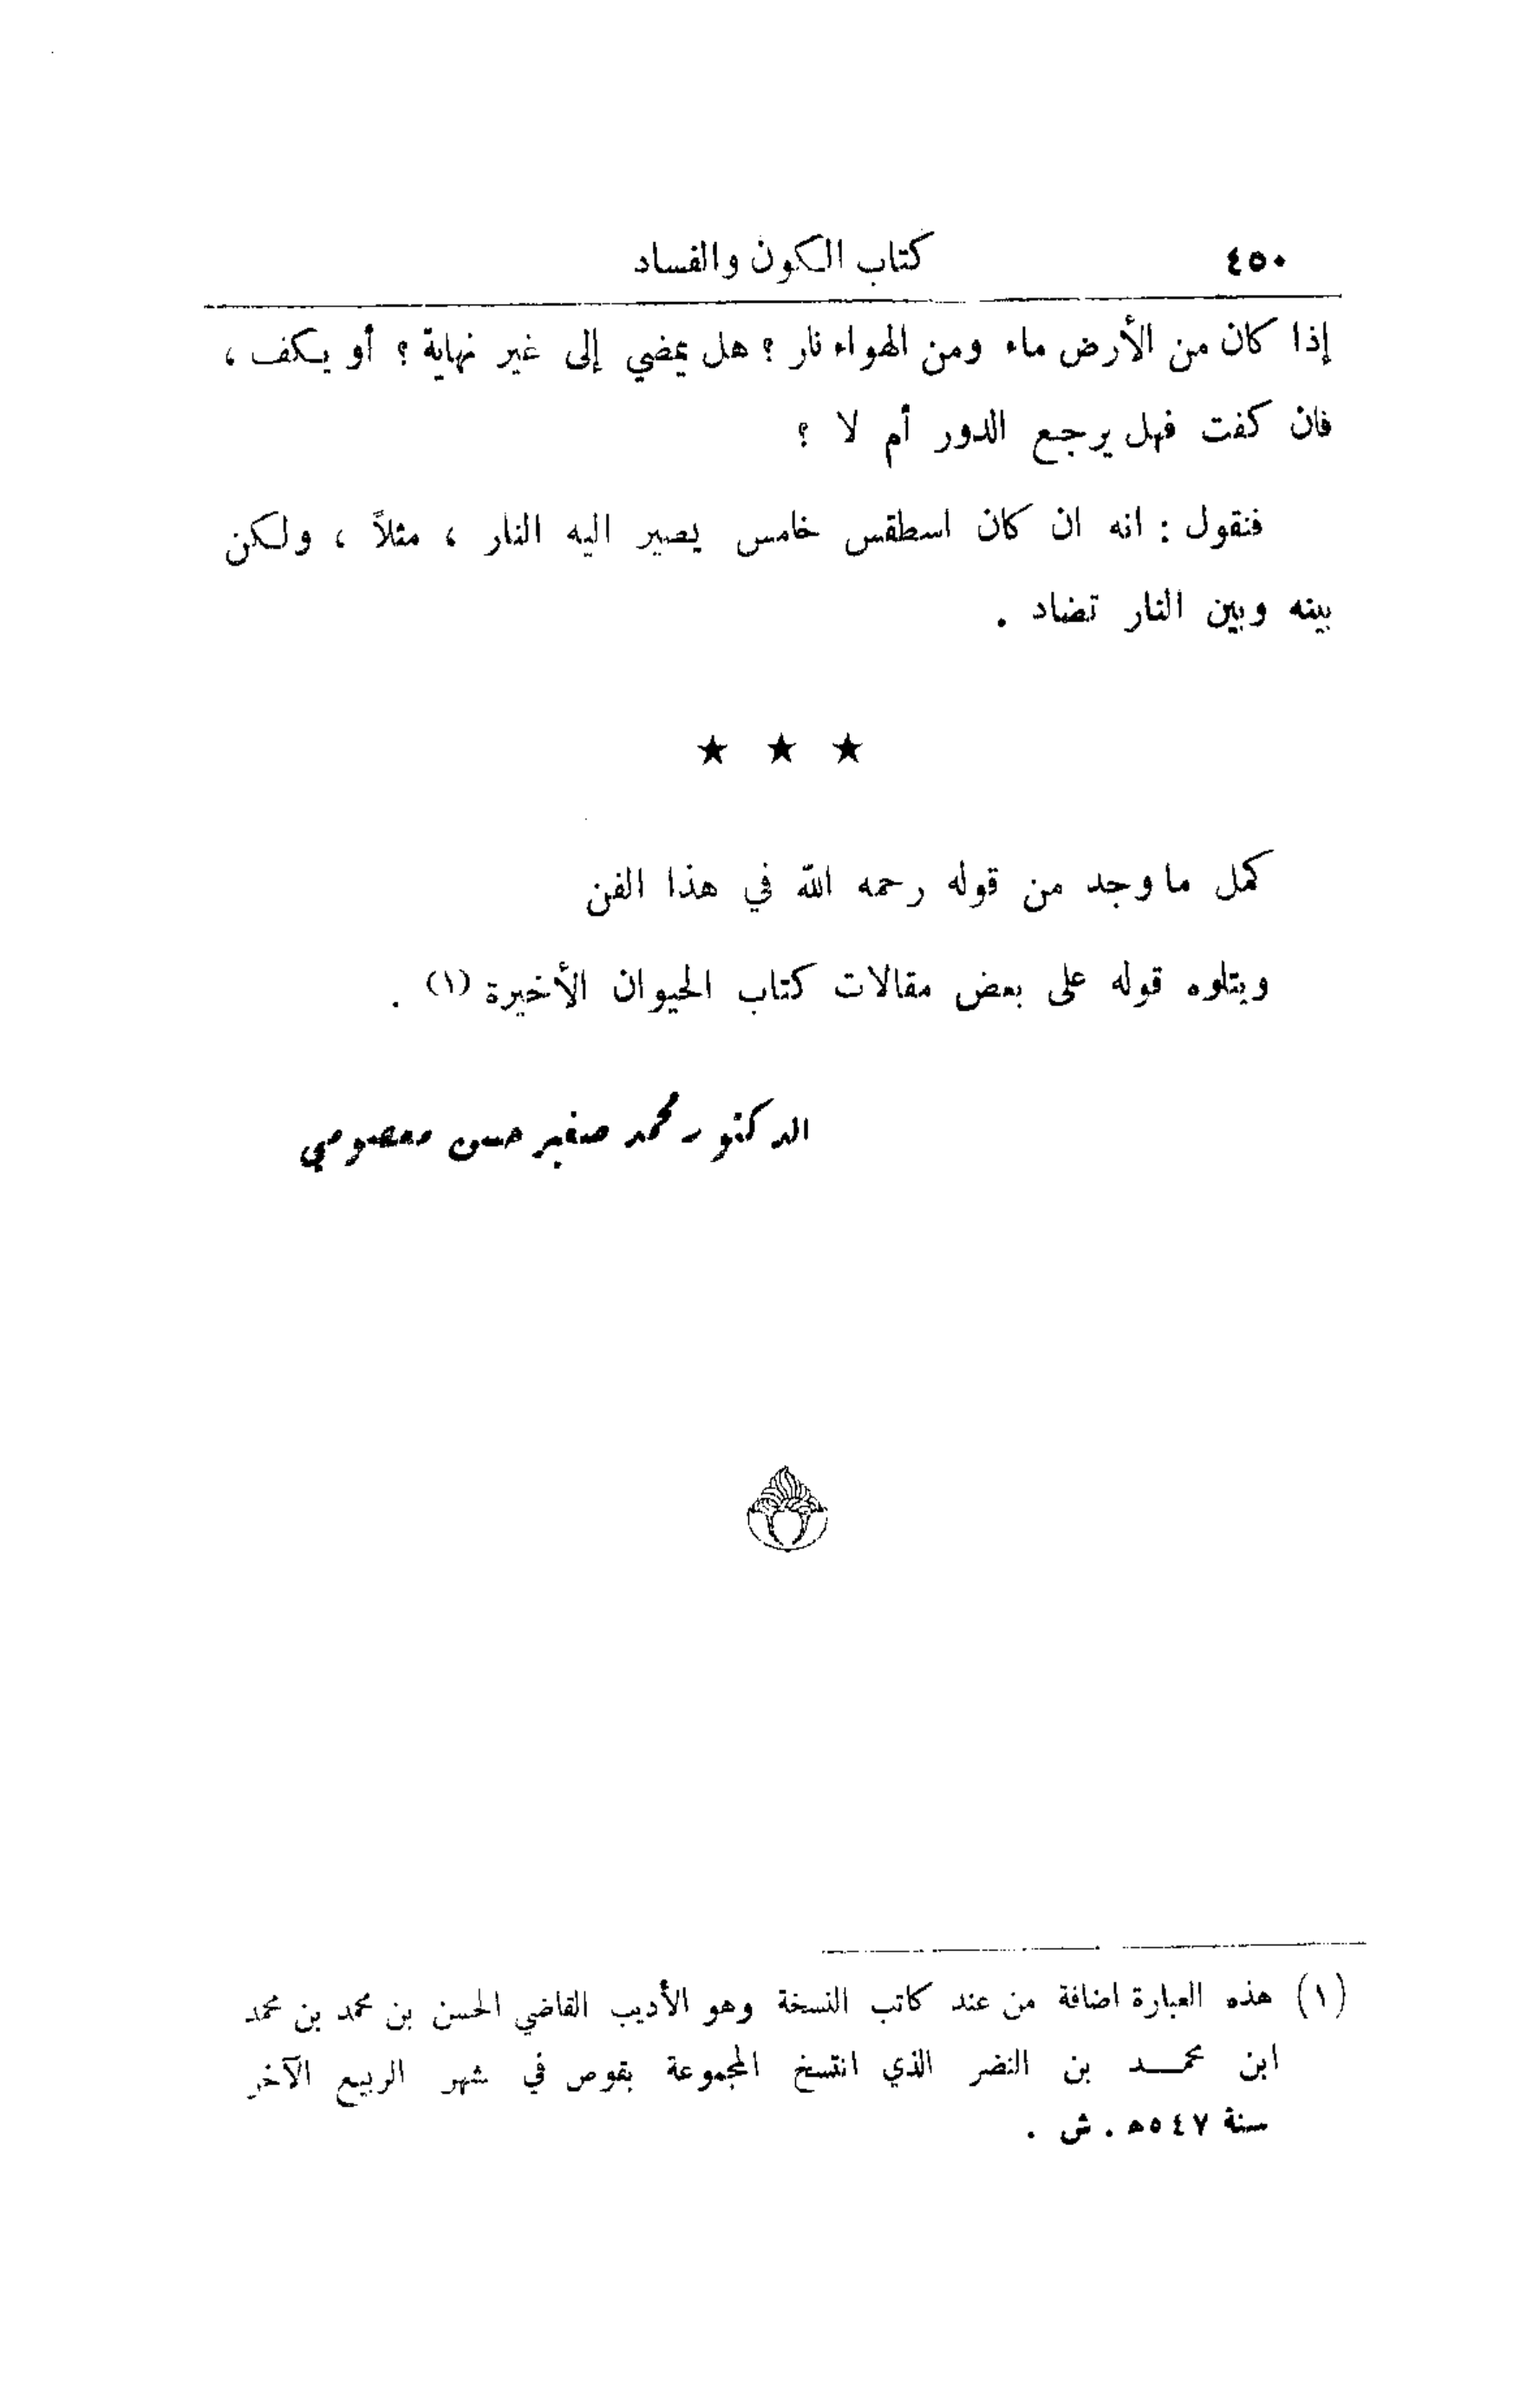 ٤٥٠ كتاب الكون والفساد
إذا كان من الأرض ماء ومن الهواء نار ؟ هل يمضي إلى غير نهاية ؟ أو يكف ،
فان كفت فهل يرجع الدور أم لا ؟
فنقول : انه ان كان اسطقس خامس يصير اليه النار ، مثلاً ، ولكن
بينه وبين النار تضاد .
★ ★ ★
كمل ما وجد من قوله رحمه الله في هذا الفن
ويتلوه قوله على بعض مقالات كتاب الحيوان الأخيرة (١) .
الدكتور محمد صغير حسن معصومي
(١) هذه العبارة اضافة من عند كاتب النسخة وهو الأديب القاضي الحسن بن محمد بن محمد
ابن محمد بن النضر الذي انتسخ المجموعة بقوص في شهر الربيع الآخر
سنة ٥٤٧ه . ش .